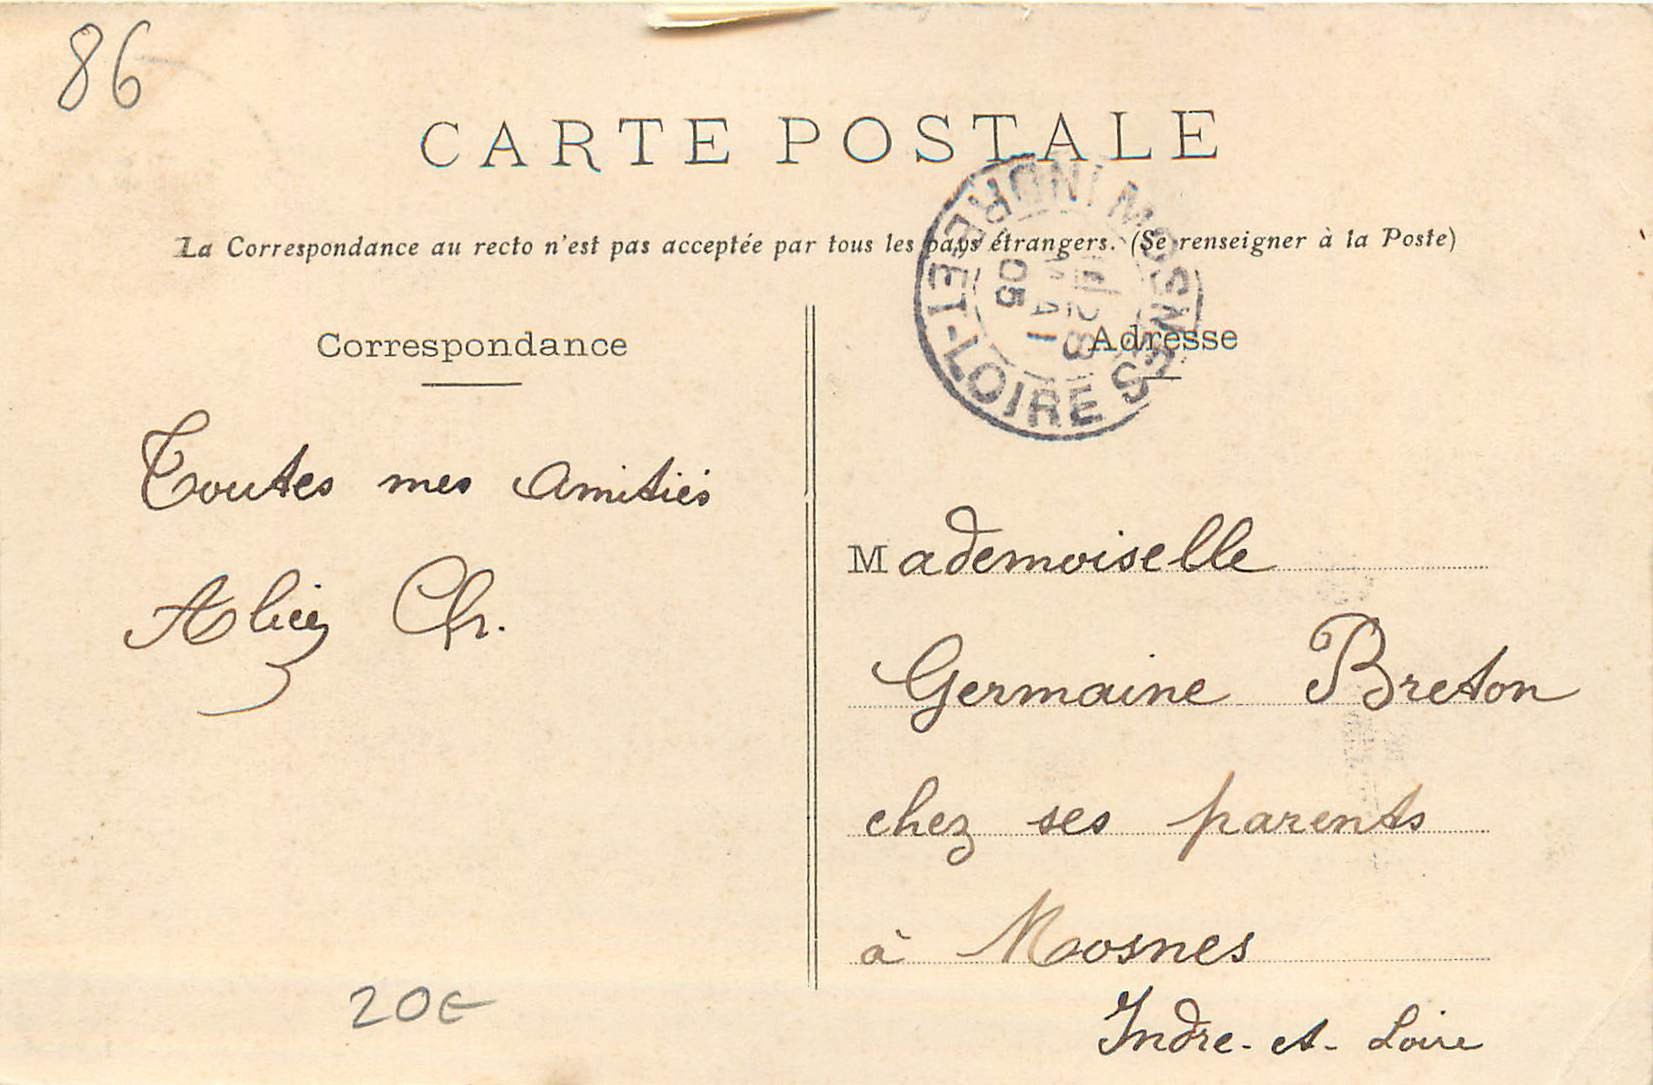 86
CARTE POSTALE
La Correspondance au recto n'est pas acceptée par tous les pays étrangers. (Se renseigner à la Poste)
MOSNES
INDRE-ET-LOIRE
28
MAI
05
Correspondance
Toutes mes amitiés
Alice Ch.
20€
Adresse
Mademoiselle
Germaine Breton
chez ses parents
à Mosnes
Indre-et-Loire